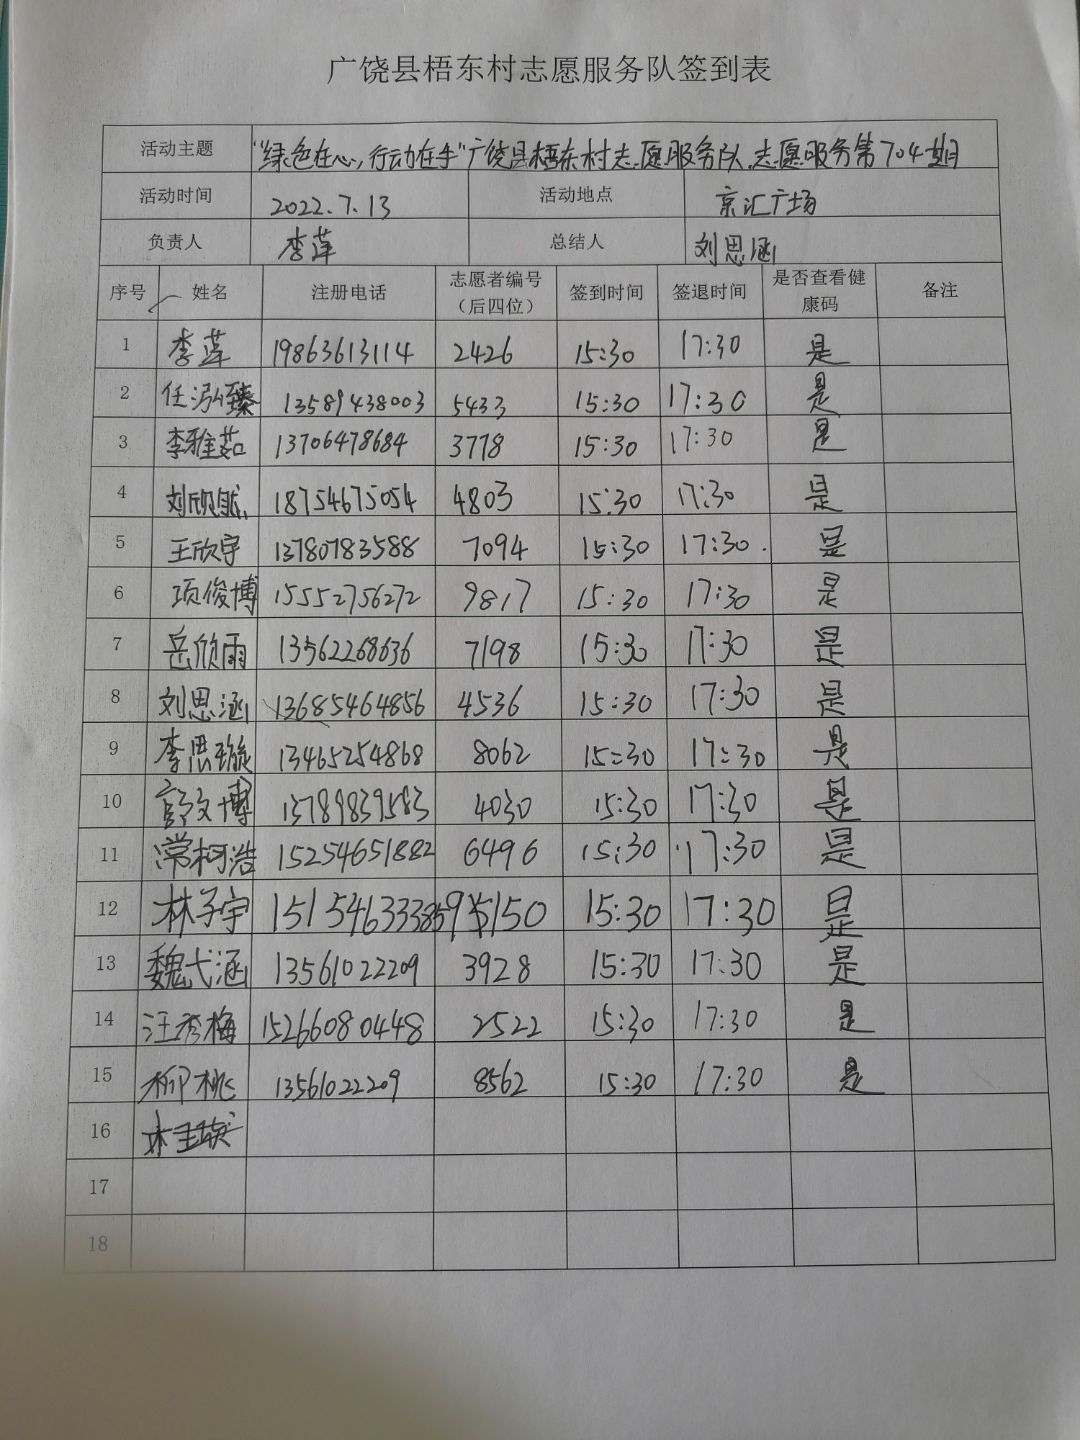 广饶县梧东村志愿服务队签到表
活动主题 “绿色在心,行动在手”广饶县梧东村志愿服务队志愿服务第704期
活动时间 2022.7.13 活动地点 京汇广场
负责人 李莲 总结人 刘思涵
序号 姓名 注册电话 志愿者编号（后四位） 签到时间 签退时间 是否查看健康码 备注
1 李莲 19863613114 2426 15:30 17:30 是
2 任泓臻 13589438003 5433 15:30 17:30 是
3 李雅茹 13706478684 3778 15:30 17:30 是
4 刘欣然 18754675054 4803 15:30 17:30 是
5 王欣宇 13780783588 7094 15:30 17:30. 是
6 项俊博 15552756272 9817 15:30 17:30 是
7 岳欣雨 13562268636 7198 15:30 17:30 是
8 刘思涵 13685464856 4536 15:30 17:30 是
9 李思璇 13465254868 8062 15:30 17:30 是
10 郭文博 13789839583 4030 15:30 17:30 是
11 常柯浩 15254651882 6496 15:30 17:30 是
12 林子宇 5150 15:30 17:30 是
13 魏弋涵 13561022209 3928 15:30 17:30 是
14 汪秀梅 15266080448 2522 15:30 17:30 是
15 柳桃 13561022209 8562 15:30 17:30 是
16
17
18